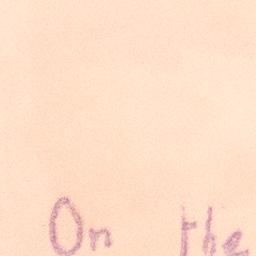 On the